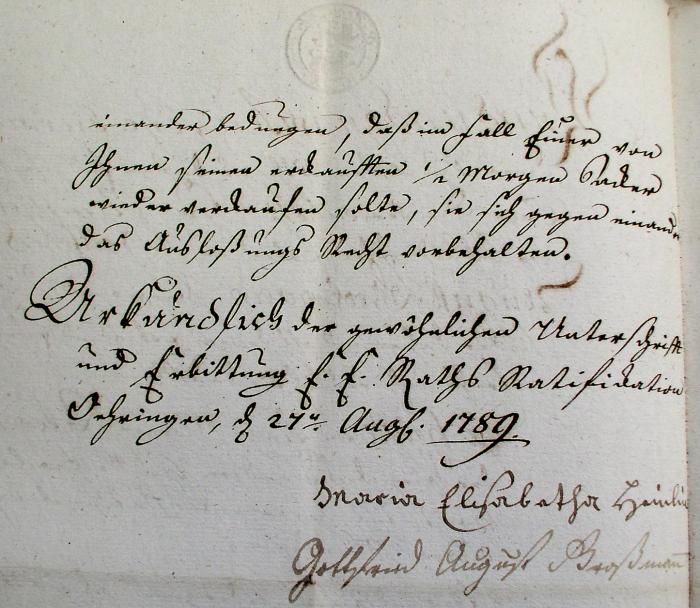 einander bedungen, daß im Fall Einer von
Ihnen seinen erkaufften 1/2 Morgen Acker
wieder verkaufen solte, sie sich gegen einander
das Auslosungs Recht vorbehalten.
Urkundlich der gewöhnlichen Unterschrifft
und Erbittung E. E. Raths Ratification
Oehringen, d 27n Augs. 1789.
Maria Elisabetha
Gottfried August Großmann